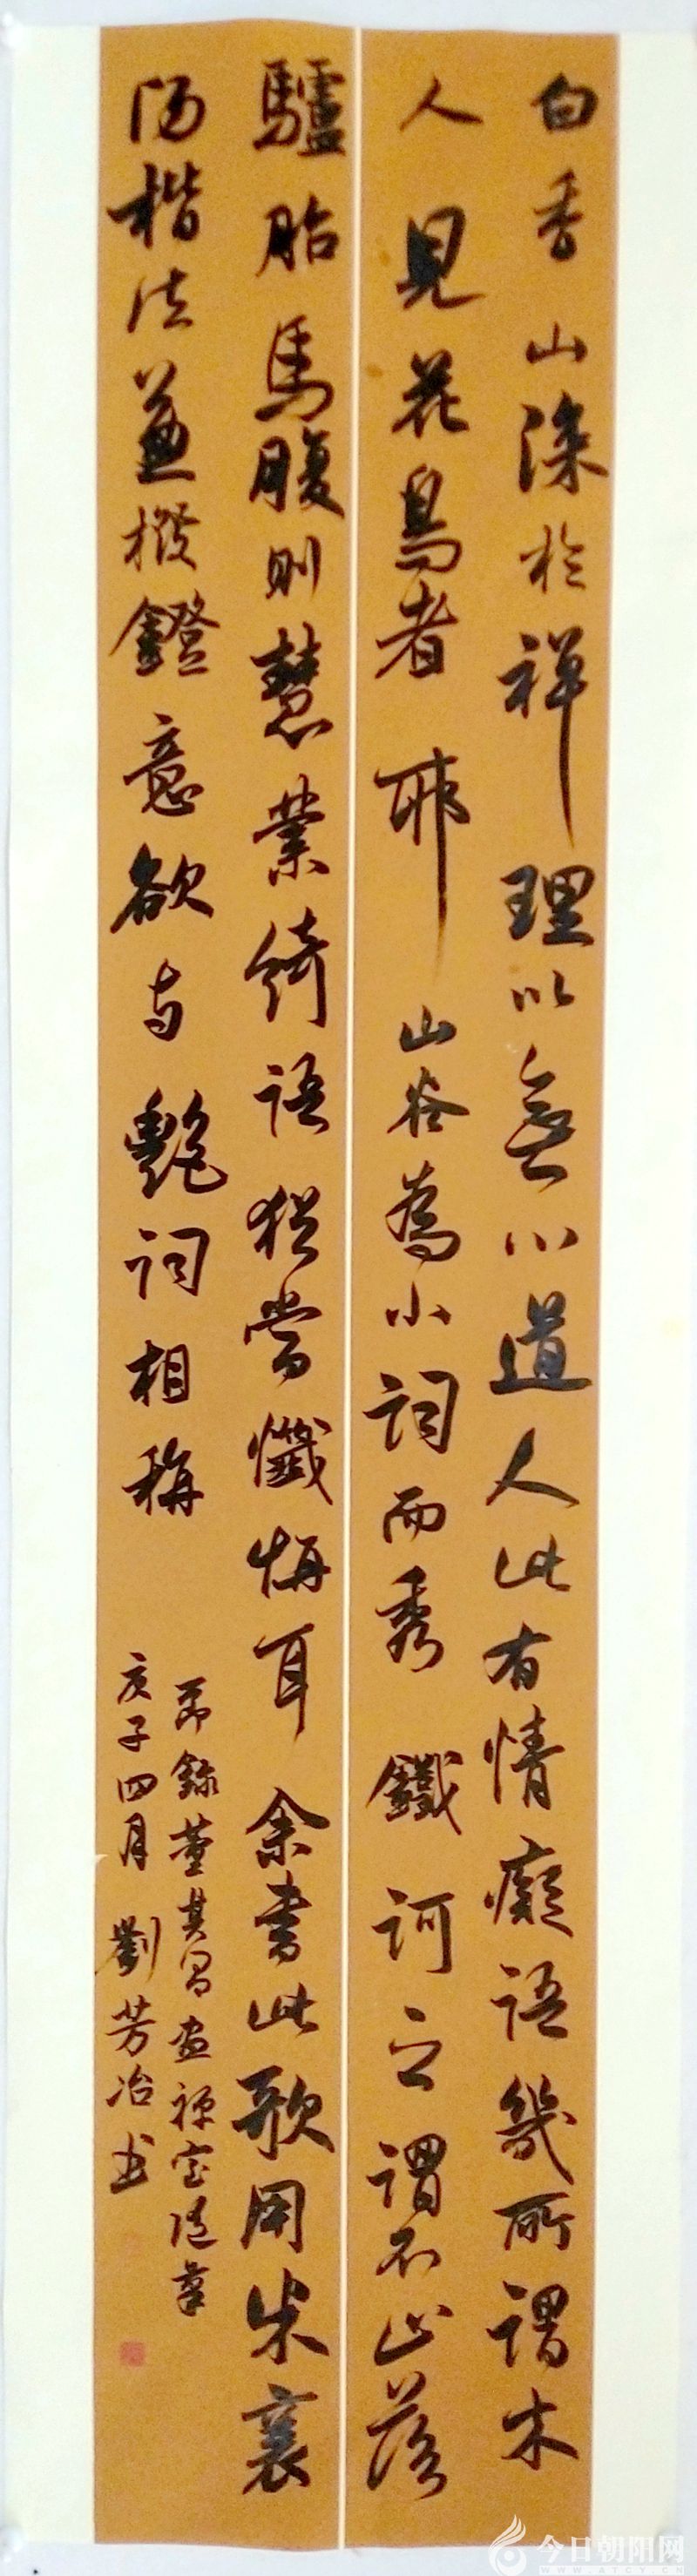 白香山深於禅理以無心道人此有情癡語幾所謂木
人見花鳥者耶山谷為小詞而秀鐵訶之謂不止落
驢胎馬腹則慧業綺語猶當懺悔耳余書此歌用米襄
陽楷法兼撥鐙意欲与艷詞相稱
節錄董其昌画禅室隨筆
庚子四月劉芳冶书
今日朝阳网
WWW.ATCYX.CN